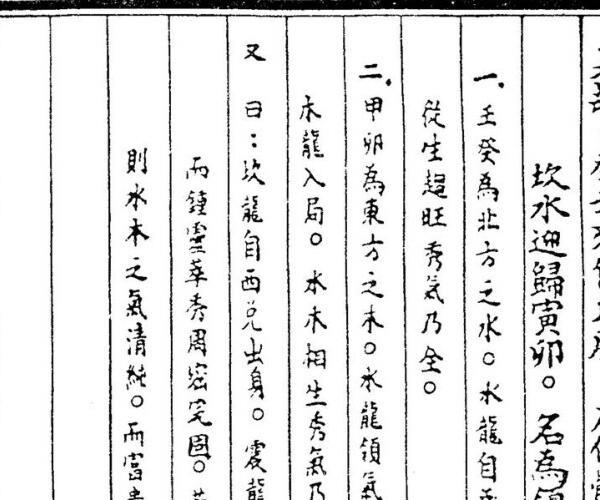 坎水迎歸寅卯。名為
一、壬癸為北方之水。水龍自
從生趨旺秀氣乃全。
二、甲卯為東方之木。水龍領氣
木龍入局。水木相生秀氣乃
又曰：坎龍自西兌出身。震龍
而鍾靈萃秀周密完固。
則水木之氣清純。而富貴